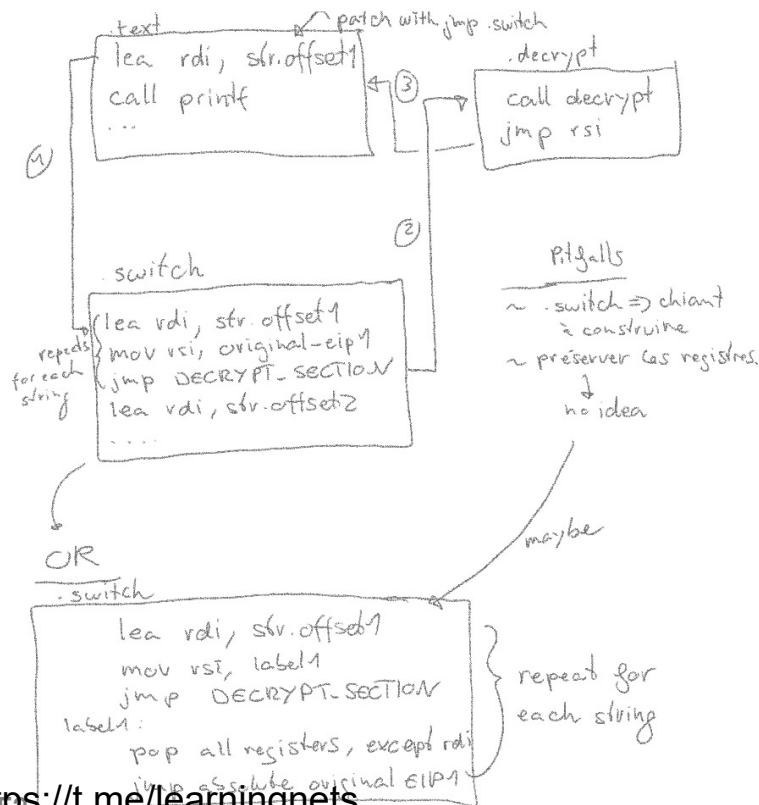 .text
patch with jmp .switch
lea rdi, str.offset1
call printf
...
.decrypt
call decrypt
jmp rsi
1
3
2
.switch
repeats
for each
string
lea rdi, str.offset1
mov rsi, original-eip1
jmp DECRYPT_SECTION
lea rdi, str.offset2
....
Pitfalls
~ .switch => chiant
à construire
~ préserver les registres.
no idea
maybe
OR
.switch
lea rdi, str.offset1
mov rsi, label1
jmp DECRYPT_SECTION
label1:
pop all registers, except rdi
jump absolute original EIP1
repeat for
each string
tps://t.me/learningnets